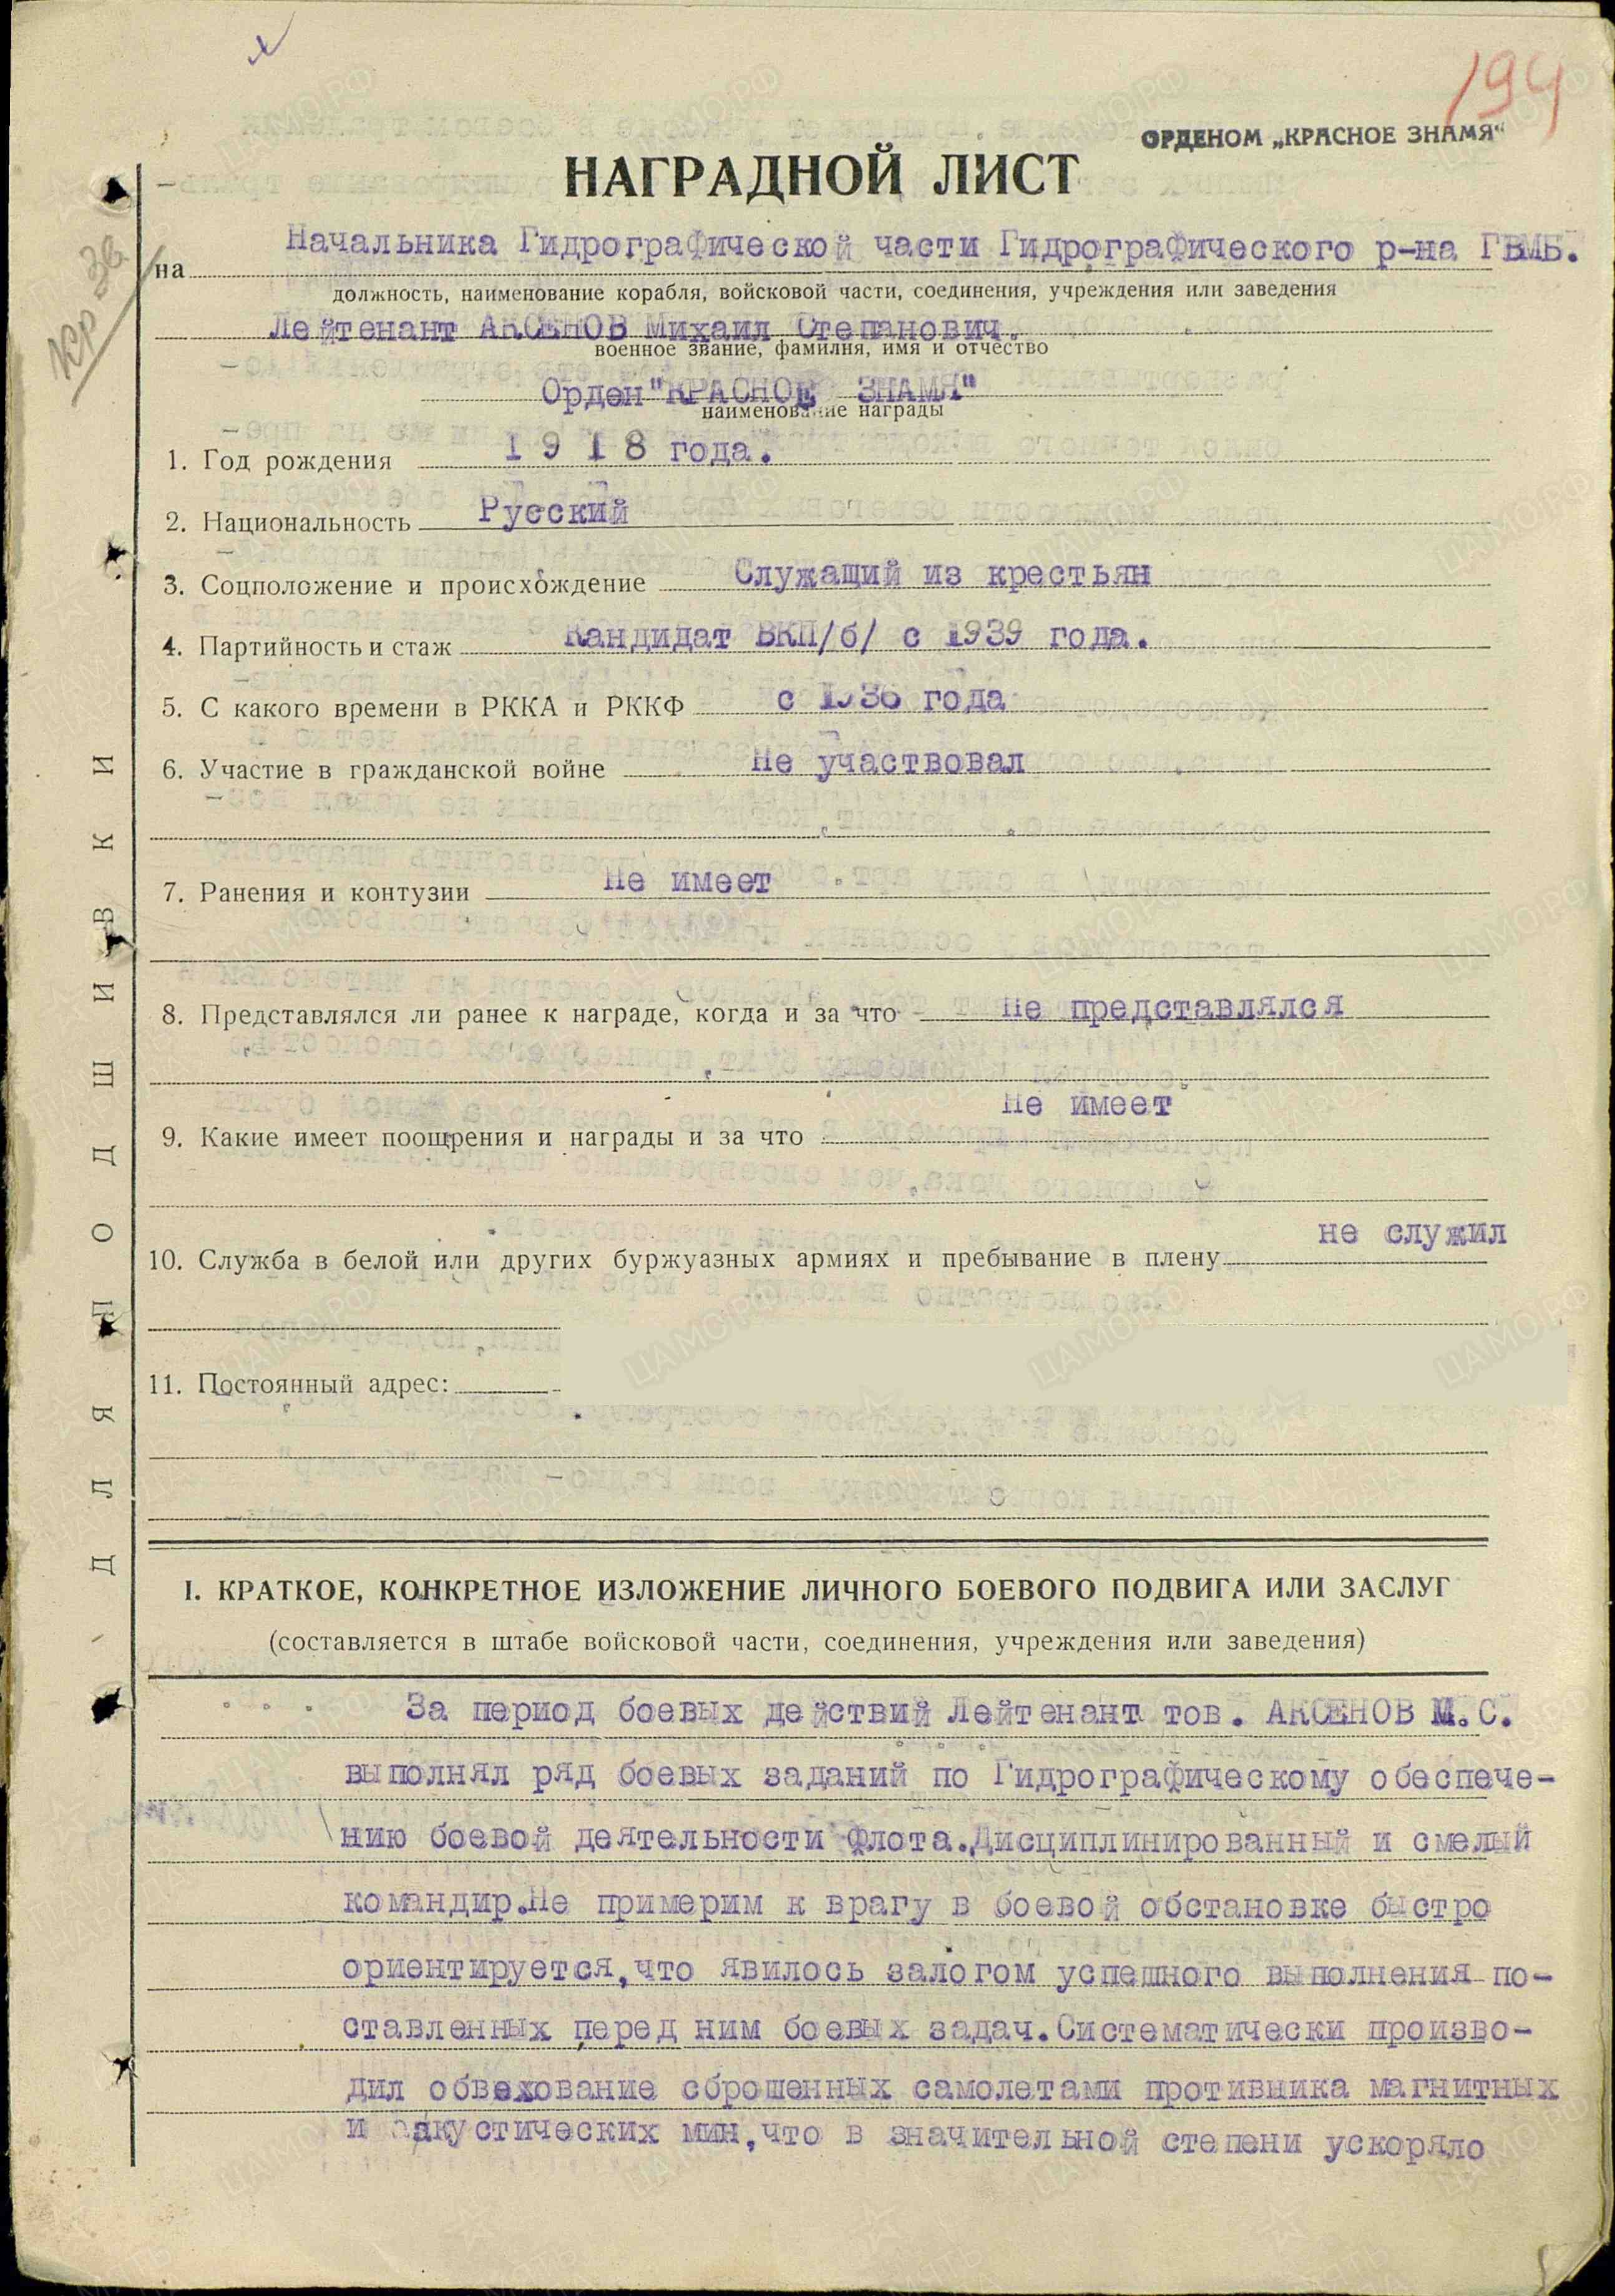 194
ОРДЕНОМ „КРАСНОЕ ЗНАМЯ“
НАГРАДНОЙ ЛИСТ
Кр Зв
на Начальника Гидрографической части Гидрографического р-на ГВМБ.
должность, наименование корабля, войсковой части, соединения, учреждения или заведения
Лейтенант АКСЕНОВ Михаил Степанович.
военное звание, фамилия, имя и отчество
Орден "КРАСНОЕ ЗНАМЯ"
наименование награды
1. Год рождения 1918 года.
2. Национальность Русский
3. Соцположение и происхождение Служащий из крестьян
4. Партийность и стаж Кандидат ВКП/б/ с 1939 года.
5. С какого времени в РККА и РККФ с 1936 года
6. Участие в гражданской войне Не участвовал
7. Ранения и контузии Не имеет
8. Представлялся ли ранее к награде, когда и за что Не представлялся
9. Какие имеет поощрения и награды и за что Не имеет
10. Служба в белой или других буржуазных армиях и пребывание в плену не служил
11. Постоянный адрес:
ДЛЯ ПОДШИВКИ
I. КРАТКОЕ, КОНКРЕТНОЕ ИЗЛОЖЕНИЕ ЛИЧНОГО БОЕВОГО ПОДВИГА ИЛИ ЗАСЛУГ
(составляется в штабе войсковой части, соединения, учреждения или заведения)
За период боевых действий Лейтенант тов. АКСЕНОВ М.С.
выполнял ряд боевых заданий по Гидрографическому обеспече-
нию боевой деятельности Флота.Дисциплинированный и смелый
командир.Не примерим к врагу в боевой обстановке быстро
ориентируется,что явилось залогом успешного выполнения по-
ставленных перед ним боевых задач.Систематически произво-
дил обвехование сброшенных самолетами противника магнитных
и аакустических мин,что в значительной степени ускоряло